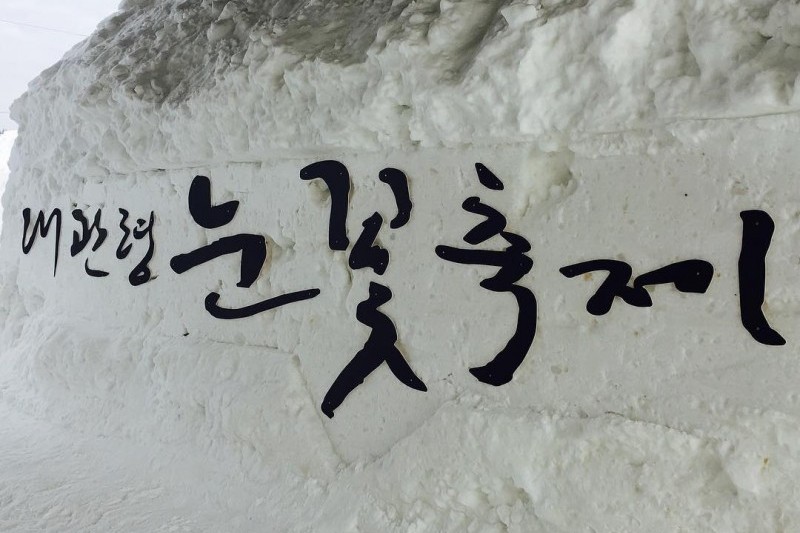 대관령 눈꽃축제